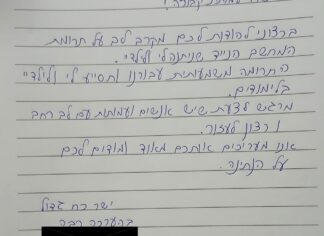 ברצוני להודות לכם מקרב לב על תרומת
המחשב הנייד שניתנה לי ולילדי.
התרומה משמעותית עבורנו ותסייע לי ולילדיי
בלימודים.
מרגש לדעת שיש אנשים ועמותות עם לב רחב
ורצון לעזור.
אנו מעריכים אתכם מאוד ומודים לכם
על הנתינה.
ישר כח גדול
בהערכה רבה